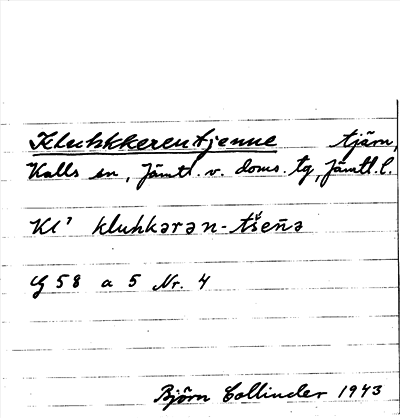 Kluhkkerentjenne tjärn,
Kalls sn, Jämtl. v. doms. tg, Jämtl. l.
Kl? kluhkərən-tšēn̄ə
G 58 a 5 Nr. 4
Björn Collinder 1943